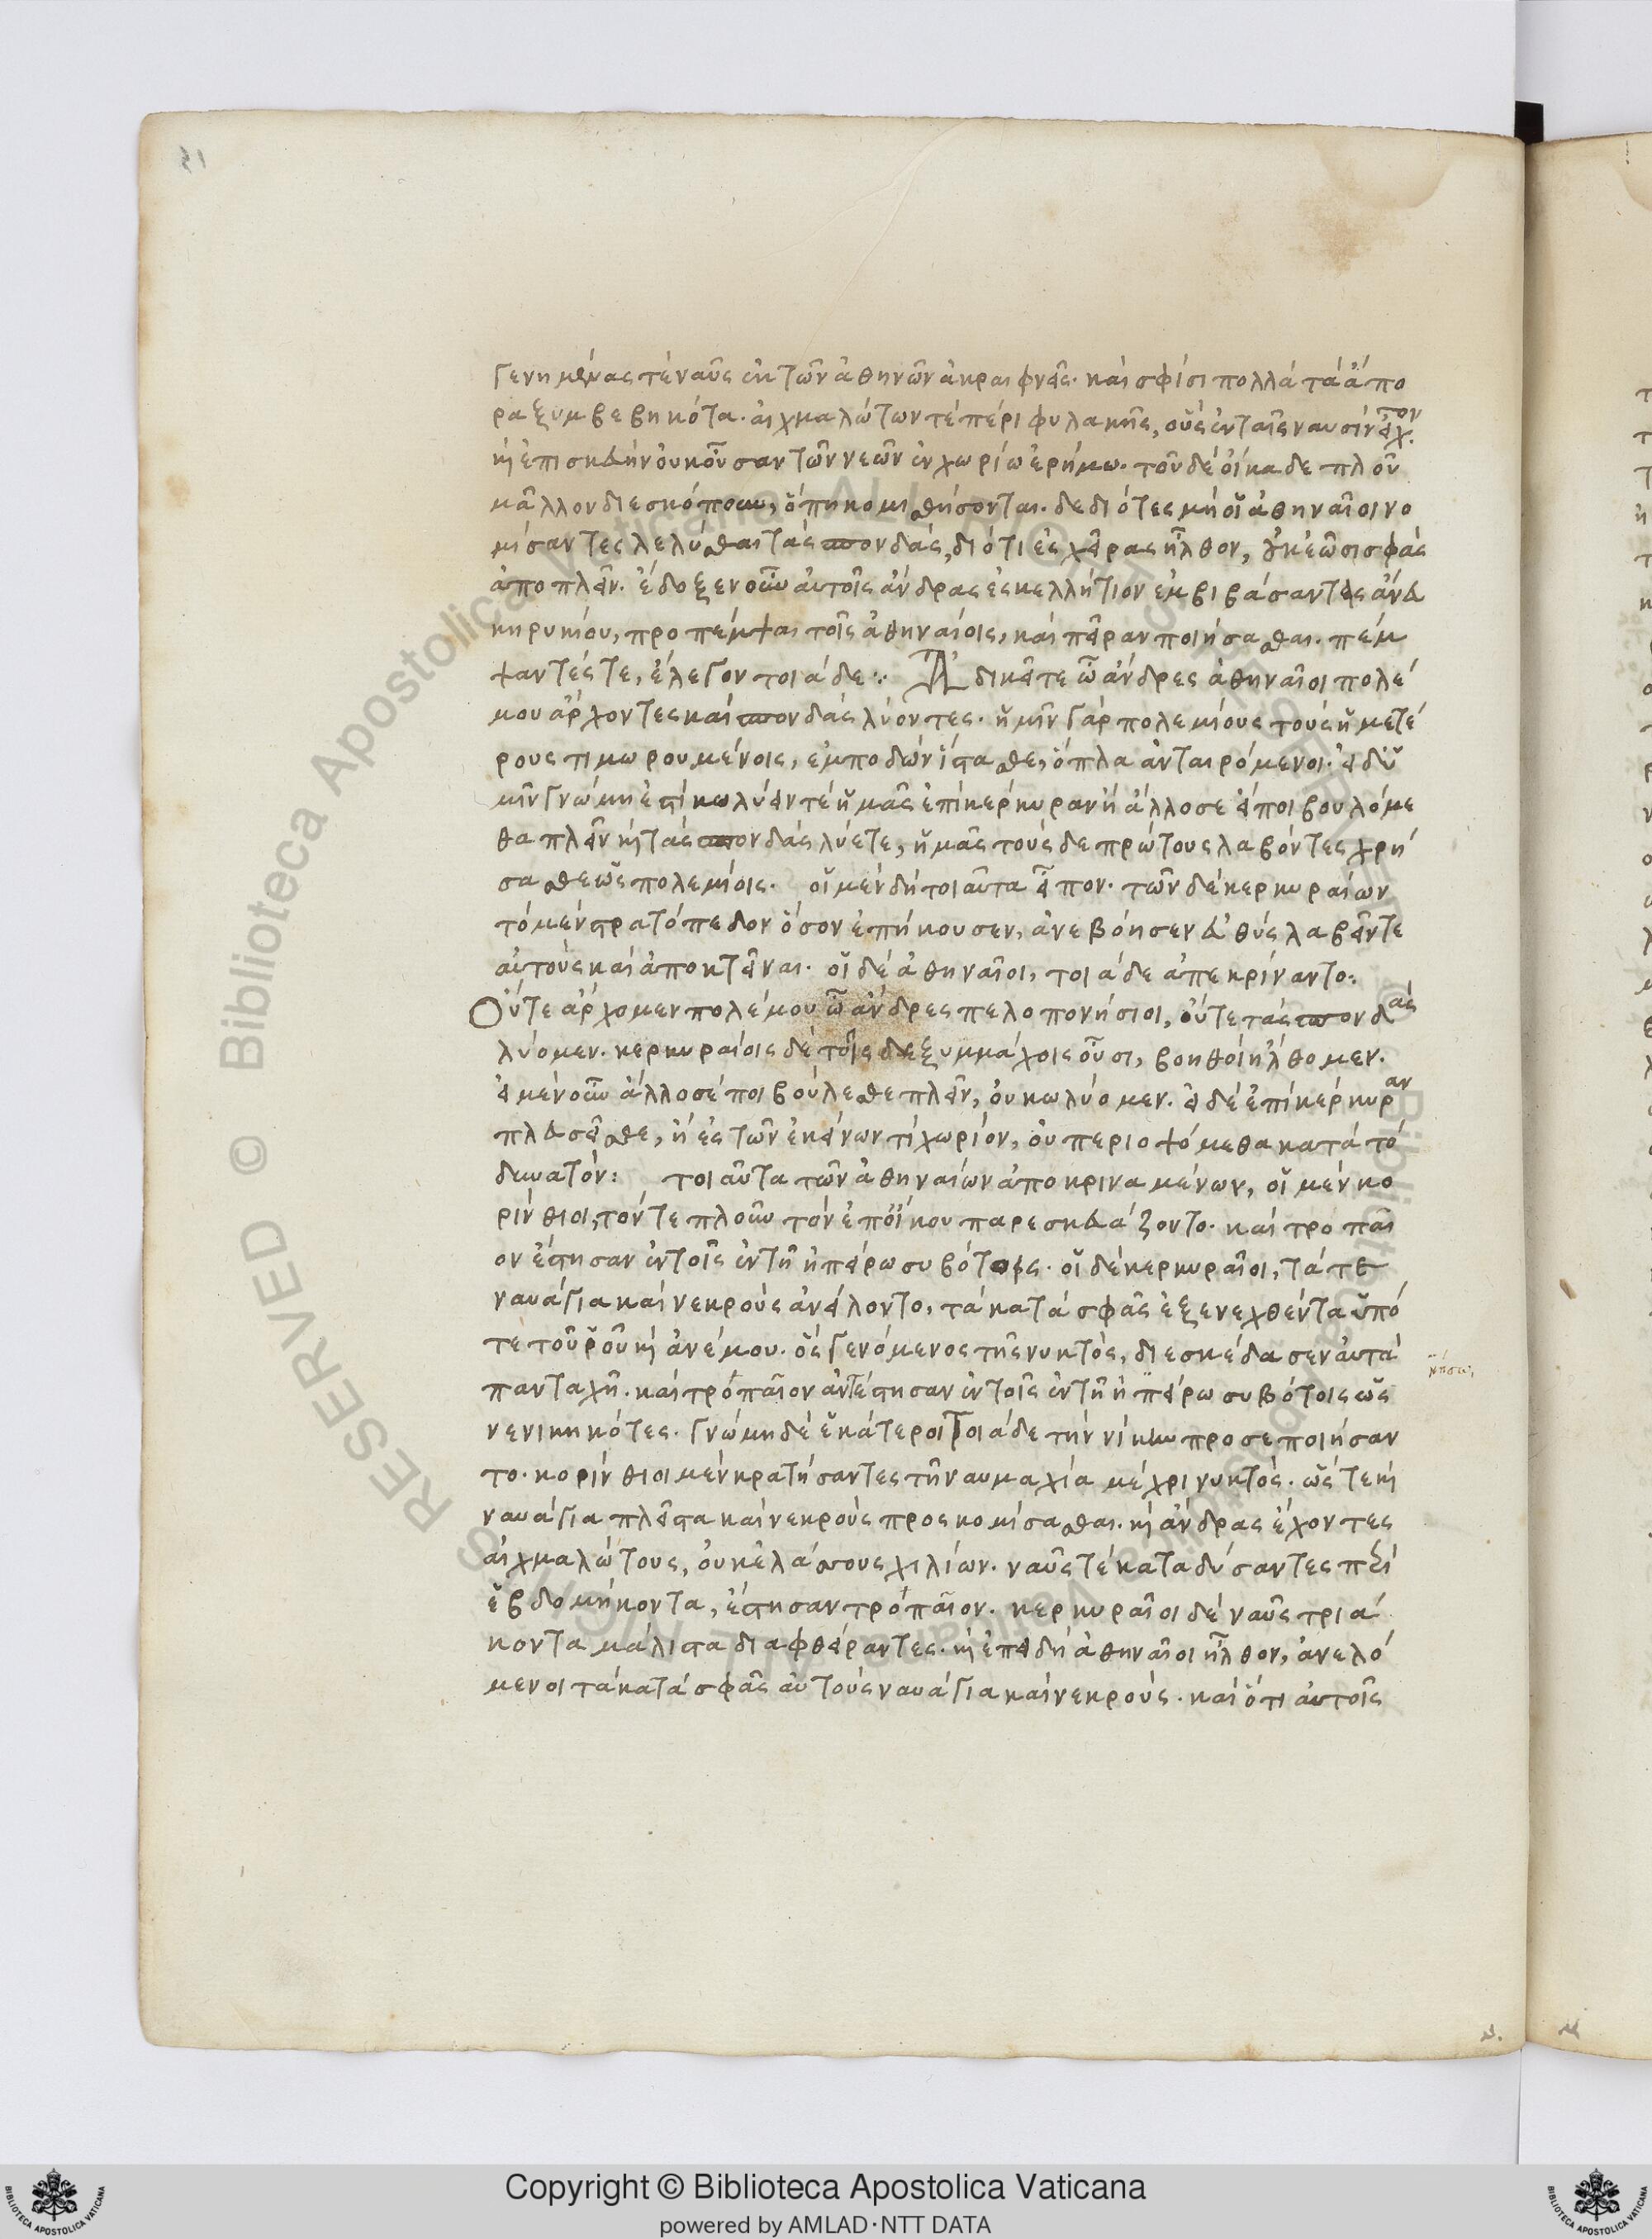 γενημένας τὲ ναῦς ἐκ τῶν ἀθηνῶν ἀκραιφνεῖς. καὶ σφίσι πολλὰ τὰ ἄπο
ρα ξυμβεβηκότα. αἰχμαλώτων τὲ πέρι φυλακῆς, οὓς ἐν ταῖς ναυσὶν εἶχον
καὶ ἐπισκευὴν οὐκ οὖσαν τῶν νεῶν ἐν χωρίω ἐρήμω. τοῦ δὲ οἴκαδε πλοῦ
μᾶλλον διεσκόπουν, ὅπη κομισθήσονται. δεδιότες μὴ οἱ ἀθηναῖοι νο
μίσαντες λελύσθαι τὰς σπονδὰς, διότι ἐς χεῖρας ἦλθον, οὐκ ἐῶσι σφὰς
ἀποπλεῖν. ἔδοξεν οὖν αὐτοῖς ἄνδρας ἐς κελλήτιον ἐμβιβάσαντες ἄνευ
κηρυκίου, προπέμψαι τοῖς ἀθηναίοις, καὶ πεῖραν ποιήσασθαι. πέμ
ψαντές τε, ἔλεγον τοιάδε :· Ἀδικεῖτε ὦ ἄνδρες ἀθηναῖοι πολέ
μου ἄρχοντες καὶ σπονδὰς λύοντες. ἡμῖν γὰρ πολεμίους τοὺς ἡμετέ
ρους τιμωρουμένοις, ἐμποδὼν ἵστασθε, ὅπλα ἀνταιρόμενοι. εἰ δ' ὑ
μῖν γνώμη ἐστὶ κωλύειν τὲ ἡμᾶς ἐπὶ κέρκυραν ἢ ἄλλοσε εἴποι βουλόμε
θα πλεῖν καὶ τὰς σπονδὰς λύετε, ἡμᾶς τούς δε πρώτους λαβόντες χρή
σασθε ὡς πολεμίοις. οἱ μὲν δὴ τοιαῦτα εἶπον. τῶν δὲ κερκυραίων
τὸ μὲν στρατόπεδον ὅσον ἐπήκουσεν, ἀνεβόησεν εὐθὺς λαβεῖν τε
αὐτοὺς καὶ ἀποκτεῖναι. οἱ δὲ ἀθηναῖοι, τοιάδε ἀπεκρίναντο:
Οὔτε ἄρχομεν πολέμου ὦ ἄνδρες πελοπονήσιοι, οὔτε τὰς σπονδὰς
λύομεν. κερκυραίοις δὲ τοῖς δε ξυμμάχοις οὖσι, βοηθοὶ ἤλθομεν.
εἰ μὲν οὖν ἄλλοσέ ποι βούλεσθε πλεῖν, οὐ κωλύομεν. εἰ δὲ ἐπὶ κέρκυραν
πλευσεῖσθε, ἢ ἐς τῶν ἐκείνων τὶ χωρίον, οὐ περιοψόμεθα κατὰ τὸ
δυνατόν: τοιαῦτα τῶν ἀθηναίων ἀποκριναμένων, οἱ μὲν κο
ρίνθιοι, τόν τε πλοῦν τὸν ἐπ' οἴκου παρεσκευάζοντο. καὶ τροπαῖ
ον ἔστησαν ἐν τοῖς ἐν τῆ ἠπείρω συβότοις. οἱ δὲ κερκυραῖοι, τά τε
ναυάγια καὶ νεκροὺς ἀνείλοντο, τὰ κατὰ σφᾶς ἐξενεχθέντα ὑπό
τε τοῦ ῥοῦ καὶ ἀνέμου. ὃς γενόμενος τῆς νυκτὸς, διεσκέδασεν αὐτὰ
πανταχῆ. καὶ τρόπαῖον ἀντέστησαν ἐν τοῖς ἐν τῆ ἠπείρω συβότοις ὡς
νενικηκότες. γνώμη δὲ ἑκάτεροι τοιάδε τὴν νίκην προσεποιήσαν
το. κορίνθιοι μὲν κρατήσαντες τῆ ναυμαχία μέχρι νυκτός. ὥς τε καὶ
ναυάγια πλεῖστα καὶ νεκροὺς προσκομίσασθαι. καὶ ἄνδρας ἔχοντες
αἰχμαλώτους, οὐκ ἐλάσσους χιλίων. ναῦς τὲ καταδύσαντες περὶ
ἑβδομήκοντα, ἔστησαν τρόπαῖον. κερκυραῖοι δὲ ναῦς τριά
κοντα μάλιστα διαφθείραντες. καὶ ἐπειδὴ ἀθηναῖοι ἦλθον, ἀνελό
μενοι τὰ κατὰ σφᾶς αὐτοὺς ναυάγια καὶ νεκρούς. καὶ ὅτι αὐτοῖς
Copyright © Biblioteca Apostolica Vaticana
powered by AMLAD·NTT DATA